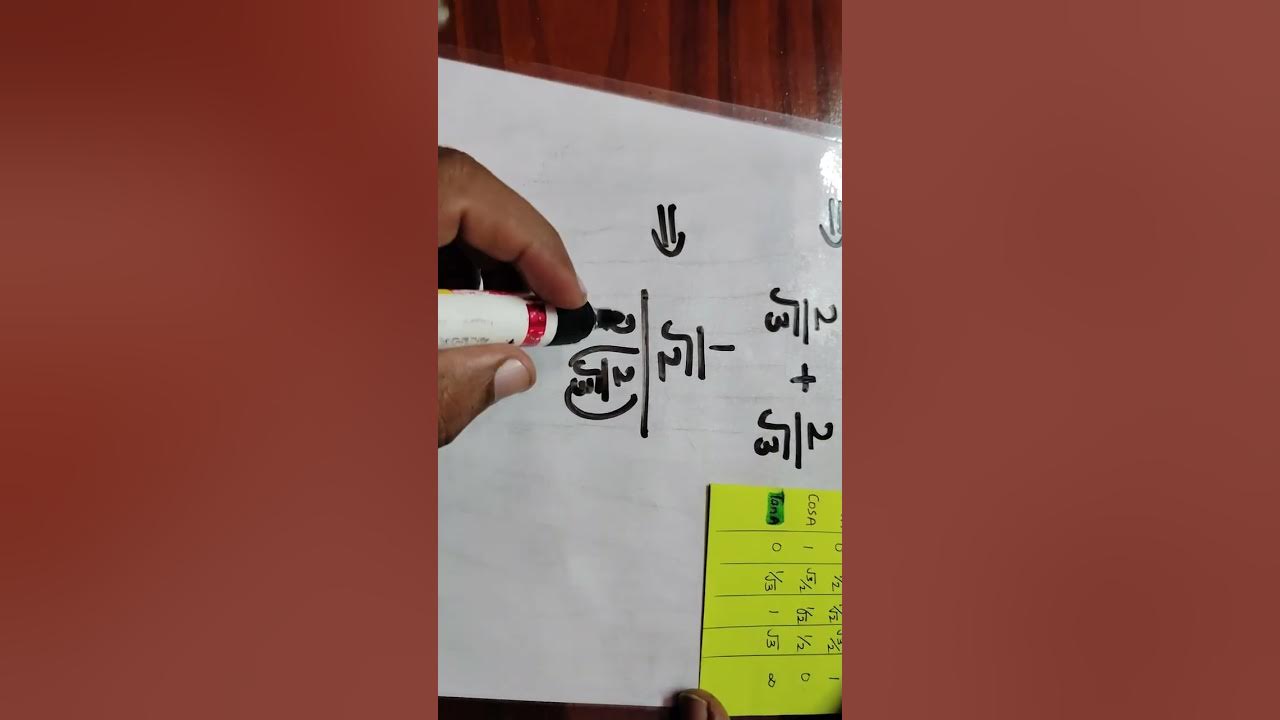 ⇒
2/√3 + 2/√3
⇒ 1/√2
2(2/√3)
0 1/2 1/√2 √3/2 1
CosA 1 √3/2 1/√2 1/2 0
TanA 0 1/√3 1 √3 ∞